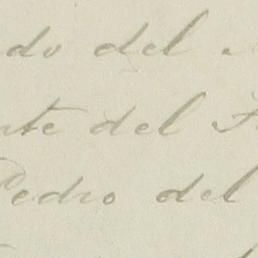 do del
te del
Pedro del